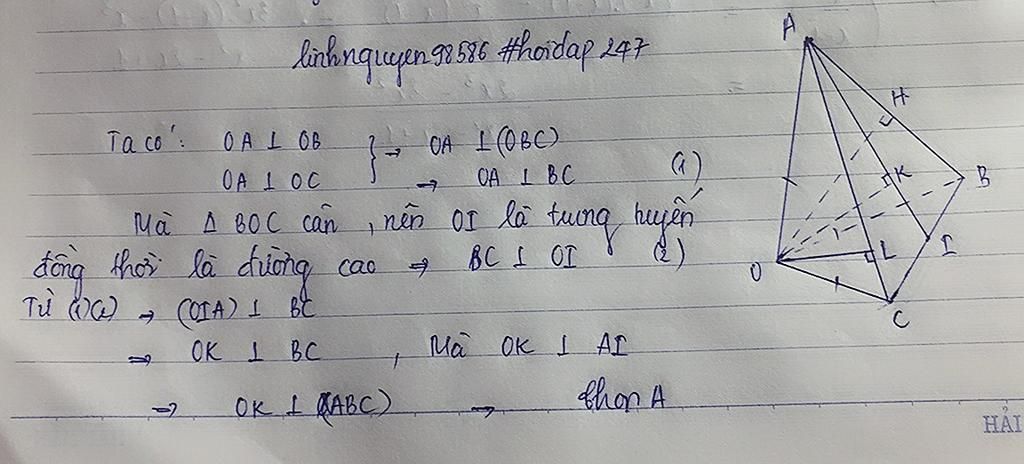 linhnguyen98586 #hoidap247
Ta có: OA ⊥ OB } → OA ⊥ (OBC)
OA ⊥ OC → OA ⊥ BC (1)
Mà Δ BOC cân, nên OI là trung tuyến
đồng thời là đường cao ⇒ BC ⊥ OI (2)
Từ (1)(2) → (OIA) ⊥ BC
⇒ OK ⊥ BC , Mà OK ⊥ AI
⇒ OK ⊥ (ABC) → chọn A
A
H
K
B
I
L
O
C
HẢI